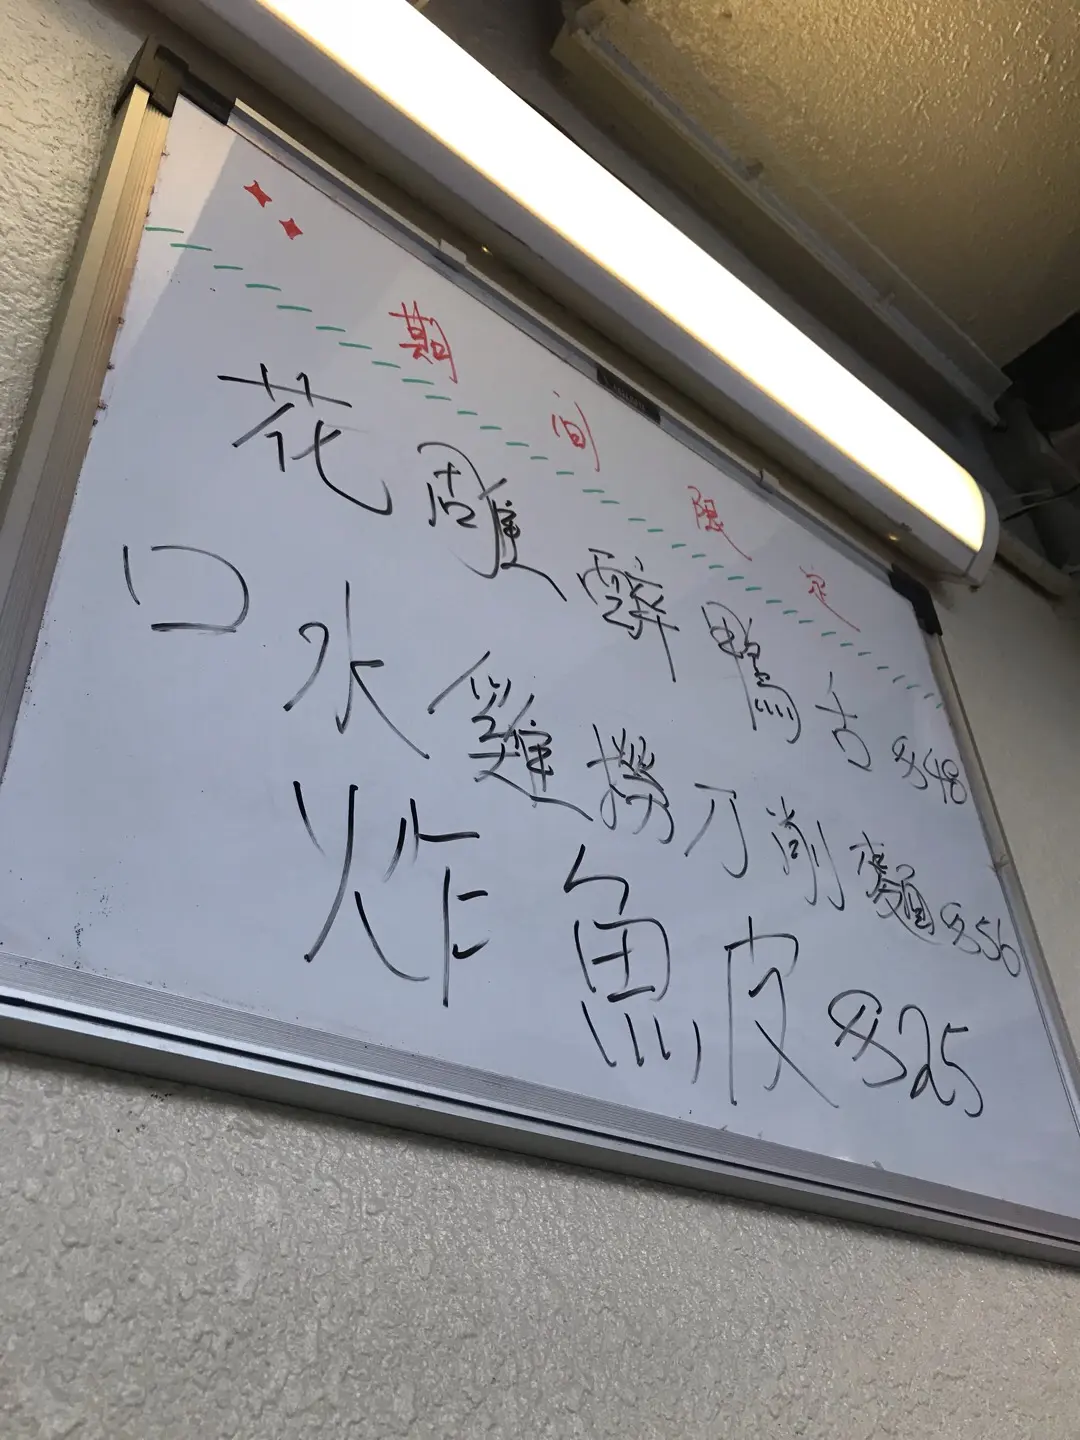 期間限定
花雕醉鴨舌 $48
口水雞撈刀削麵 $56
炸魚皮 $25